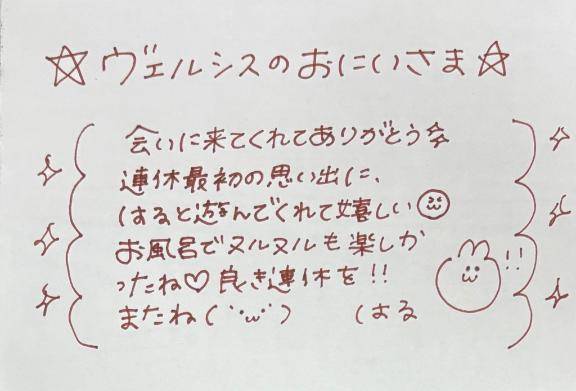 ☆ヴェルシスのおにいさま☆
会いに来てくれてありがとう✨
連休最初の思い出に、
はると遊んでくれて嬉しい
お風呂でヌルヌルも楽しか
ったね♡良き連休を!!
またね(˙˙ω˙˙) はる
!!